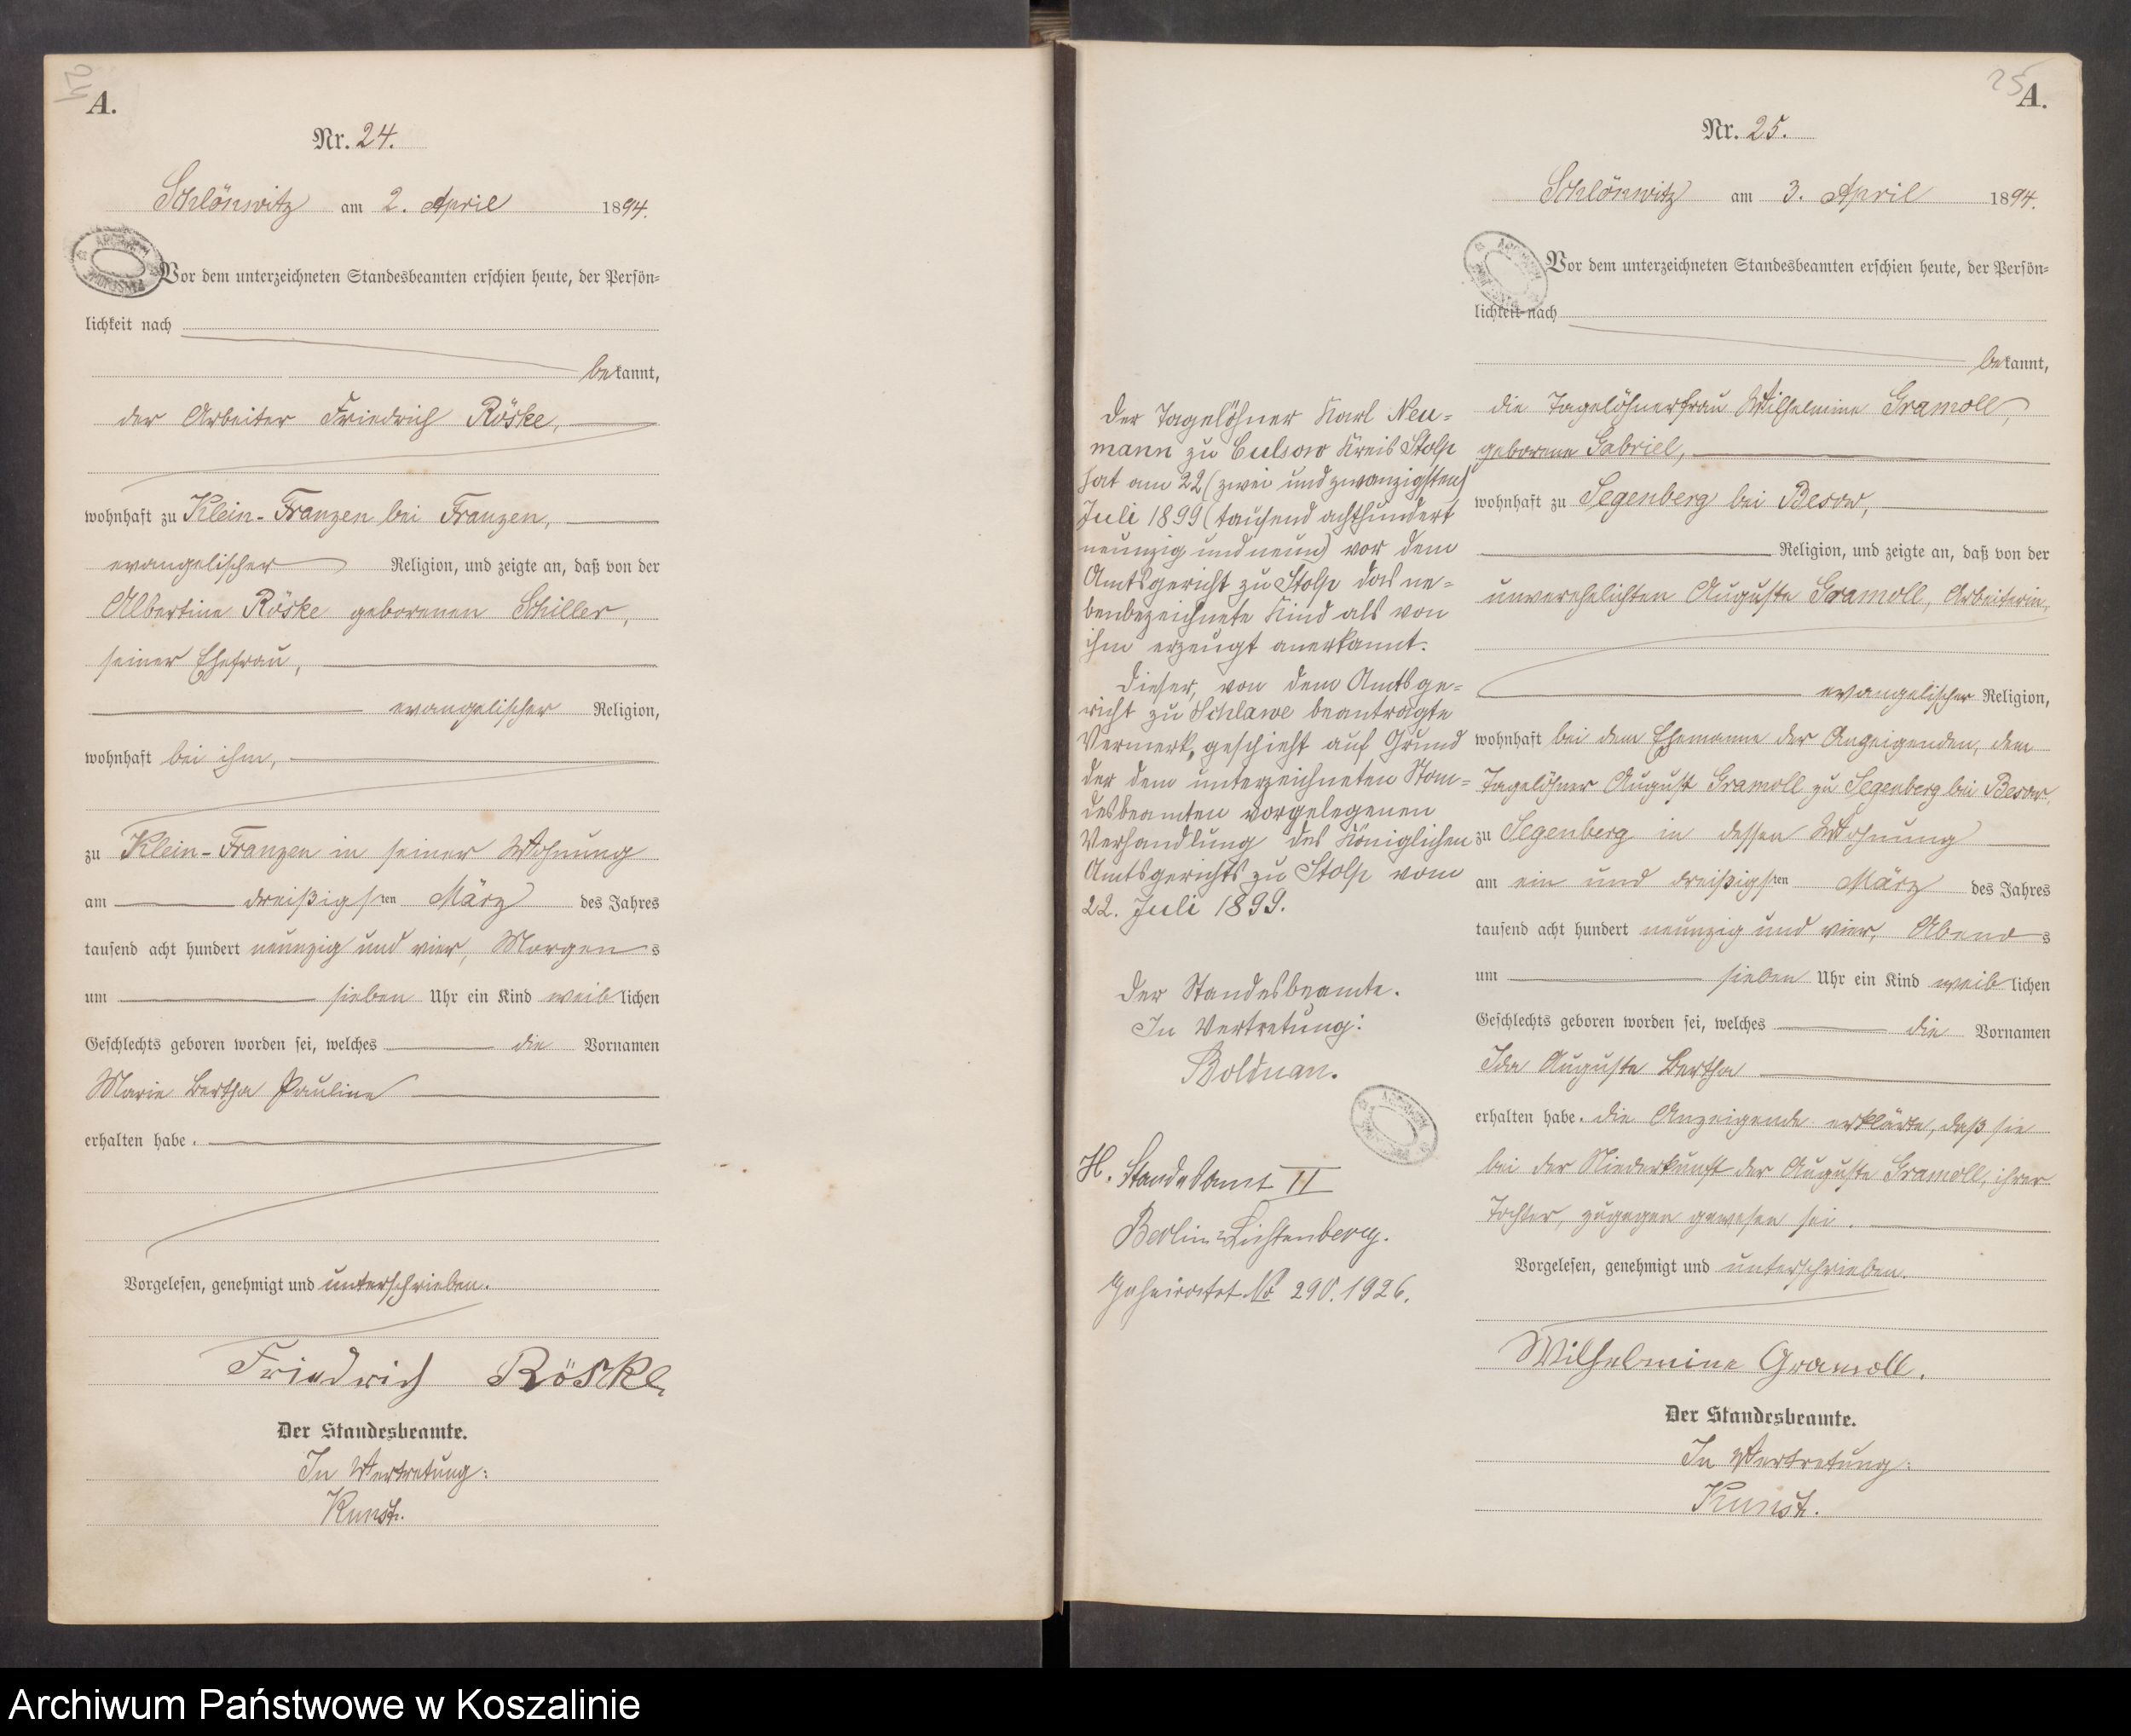 24
A.
Nr. 24.
Schlönwitz am 2. April 1894.
Vor dem unterzeichneten Standesbeamten erschien heute, der Persön=
lichkeit nach
bekannt,
der Arbeiter Friedrich Röske,
wohnhaft zu Klein-Franzen bei Franzen,
evangelischer Religion, und zeigte an, daß von der
Albertine Röske geborenen Schiller,
seiner Ehefrau,
evangelischer Religion,
wohnhaft bei ihm,
zu Klein-Franzen in seiner Wohnung
am dreißigsten März des Jahres
tausend acht hundert neunzig und vier, Morgens
um sieben Uhr ein Kind weiblichen
Geschlechts geboren worden sei, welches die Vornamen
Marie Bertha Pauline
erhalten habe.
Vorgelesen, genehmigt und unterschrieben.
Friedrich Röske
Der Standesbeamte.
In Vertretung:
Kunst.
25
A.
Nr. 25.
Schlönwitz am 3. April 1894.
Vor dem unterzeichneten Standesbeamten erschien heute, der Persön=
lichkeit nach
bekannt,
die Tagelöhnerfrau Wilhelmine Gramoll,
geborene Gabriel,
wohnhaft zu Segenberg bei Besow,
Religion, und zeigte an, daß von der
unverehelichten Auguste Gramoll, Arbeiterin,
evangelischer Religion,
wohnhaft bei dem Ehemanne der Anzeigenden, dem
Tagelöhner August Gramoll zu Segenberg bei Besow,
zu Segenberg in dessen Wohnung
am ein und dreißigsten März des Jahres
tausend acht hundert neunzig und vier, Abends
um sieben Uhr ein Kind weiblichen
Geschlechts geboren worden sei, welches die Vornamen
Ida Auguste Bertha
erhalten habe. Die Anzeigende erklärte, daß sie
bei der Niederkunft der Auguste Gramoll, ihrer
Tochter, zugegen gewesen sei.
Vorgelesen, genehmigt und unterschrieben.
Wilhelmine Gramoll.
Der Standesbeamte.
In Vertretung:
Kunst.
Der Tagelöhner Karl Neu=
mann zu Culsow Kreis Stolp
hat am 22 (zwei und zwanzigsten)
Juli 1899 (tausend achthundert
neunzig und neun) vor dem
Amtsgericht zu Stolp das ne=
benbezeichnete Kind als von
ihm erzeugt anerkannt.
Dieser, von dem Amtsge=
richt zu Schlawe beantragte
Vermerk, geschieht auf Grund
der dem unterzeichneten Stan=
desbeamten vorgelegenen
Verhandlung des Königlichen
Amtsgerichts zu Stolp vom
22. Juli 1899.
Der Standesbeamte.
In Vertretung:
Bolduan.
H. Standesamt II
Berlin-Lichtenberg.
Geheiratet No 290.1926.
Archiwum Państwowe w Koszalinie